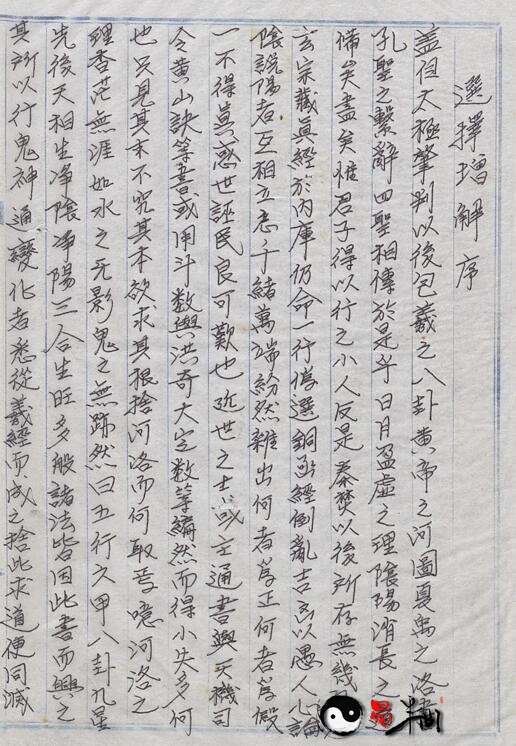 選擇增解序
盖但太極肇判以後包羲之八卦黄帝之河圖夏禹之洛書
孔聖之繫辭四聖相傳於是乎日月盈虚之理陰陽消長之道
備矣盡矣惟君子得以行之小人反是秦焚以後所存無幾
玄宗藏眞經於內庫仍命一行僞選銅函經倒亂吉凶以愚人心論
陰說陽者互相立志千緒萬端紛然雜出何者爲正何者爲假
一不得眞惑世誣民良可歎也近世之士或主通書與天機司
令黄山訣等書或用斗数與洪奇大定数等編然而得小失多何
也只見其末不究其本欲求其根捨河洛而何取焉噫河洛之
理杳茫無涯如水之无影鬼之無跡然曰五行六甲八卦九星
先後天相生净陰净陽三合生旺多般諸法皆因此書而興之
其所以行鬼神通變化者悉從羲經而成之捨此求道便同滅